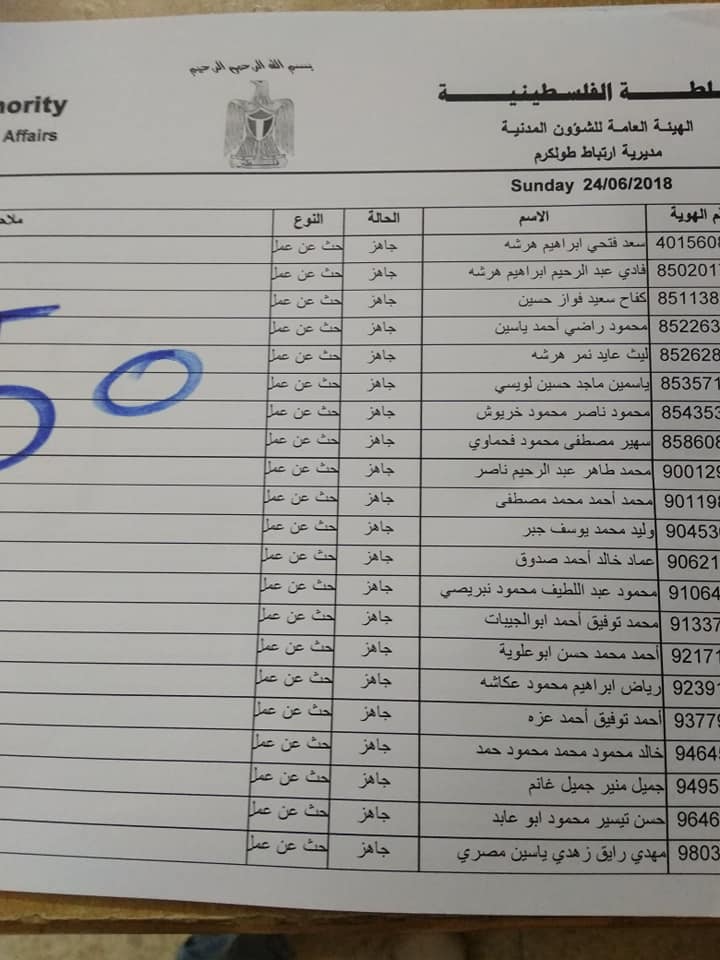 بسم الله الرحمن الرحيم
الفلسطينية
الهيئة العامة للشؤون المدنية
Affairs
مديرية ارتباط طولكرم
Sunday 24/06/2018
الهوية الاسم الحالة النوع
سعد فتحي ابراهيم هرشه جاهز حث عن عمل
فادي عبد الرحيم ابراهيم هرشه جاهز حث عن عمل
كفاح سعيد فواز حسين جاهز حث عن عمل
محمود راضي أحمد ياسين جاهز حث عن عمل
ليث عايد نمر هرشه جاهز حث عن عمل
ياسمين ماجد حسين لويسي جاهز حث عن عمل
محمود ناصر محمود خريوش جاهز حث عن عمل
سهير مصطفى محمود فحماوي جاهز حث عن عمل
محمد طاهر عبد الرحيم ناصر جاهز حث عن عمل
محمد أحمد محمد مصطفى جاهز حث عن عمل
وليد محمد يوسف جبر جاهز حث عن عمل
عماد خالد أحمد صدوق جاهز حث عن عمل
محمود عبد اللطيف محمود نبريصي جاهز حث عن عمل
محمد توفيق أحمد ابوالجيبات جاهز حث عن عمل
أحمد محمد حسن ابوعلوية جاهز حث عن عمل
رياض ابراهيم محمود عكاشه جاهز حث عن عمل
أحمد توفيق أحمد عزه جاهز حث عن عمل
خالد محمود محمد محمود حمد جاهز حث عن عمل
جميل منير جميل غانم جاهز حث عن عمل
حسن تيسير محمود ابو عابد جاهز حث عن عمل
مهدي رايق زهدي ياسين مصري جاهز حث عن عمل